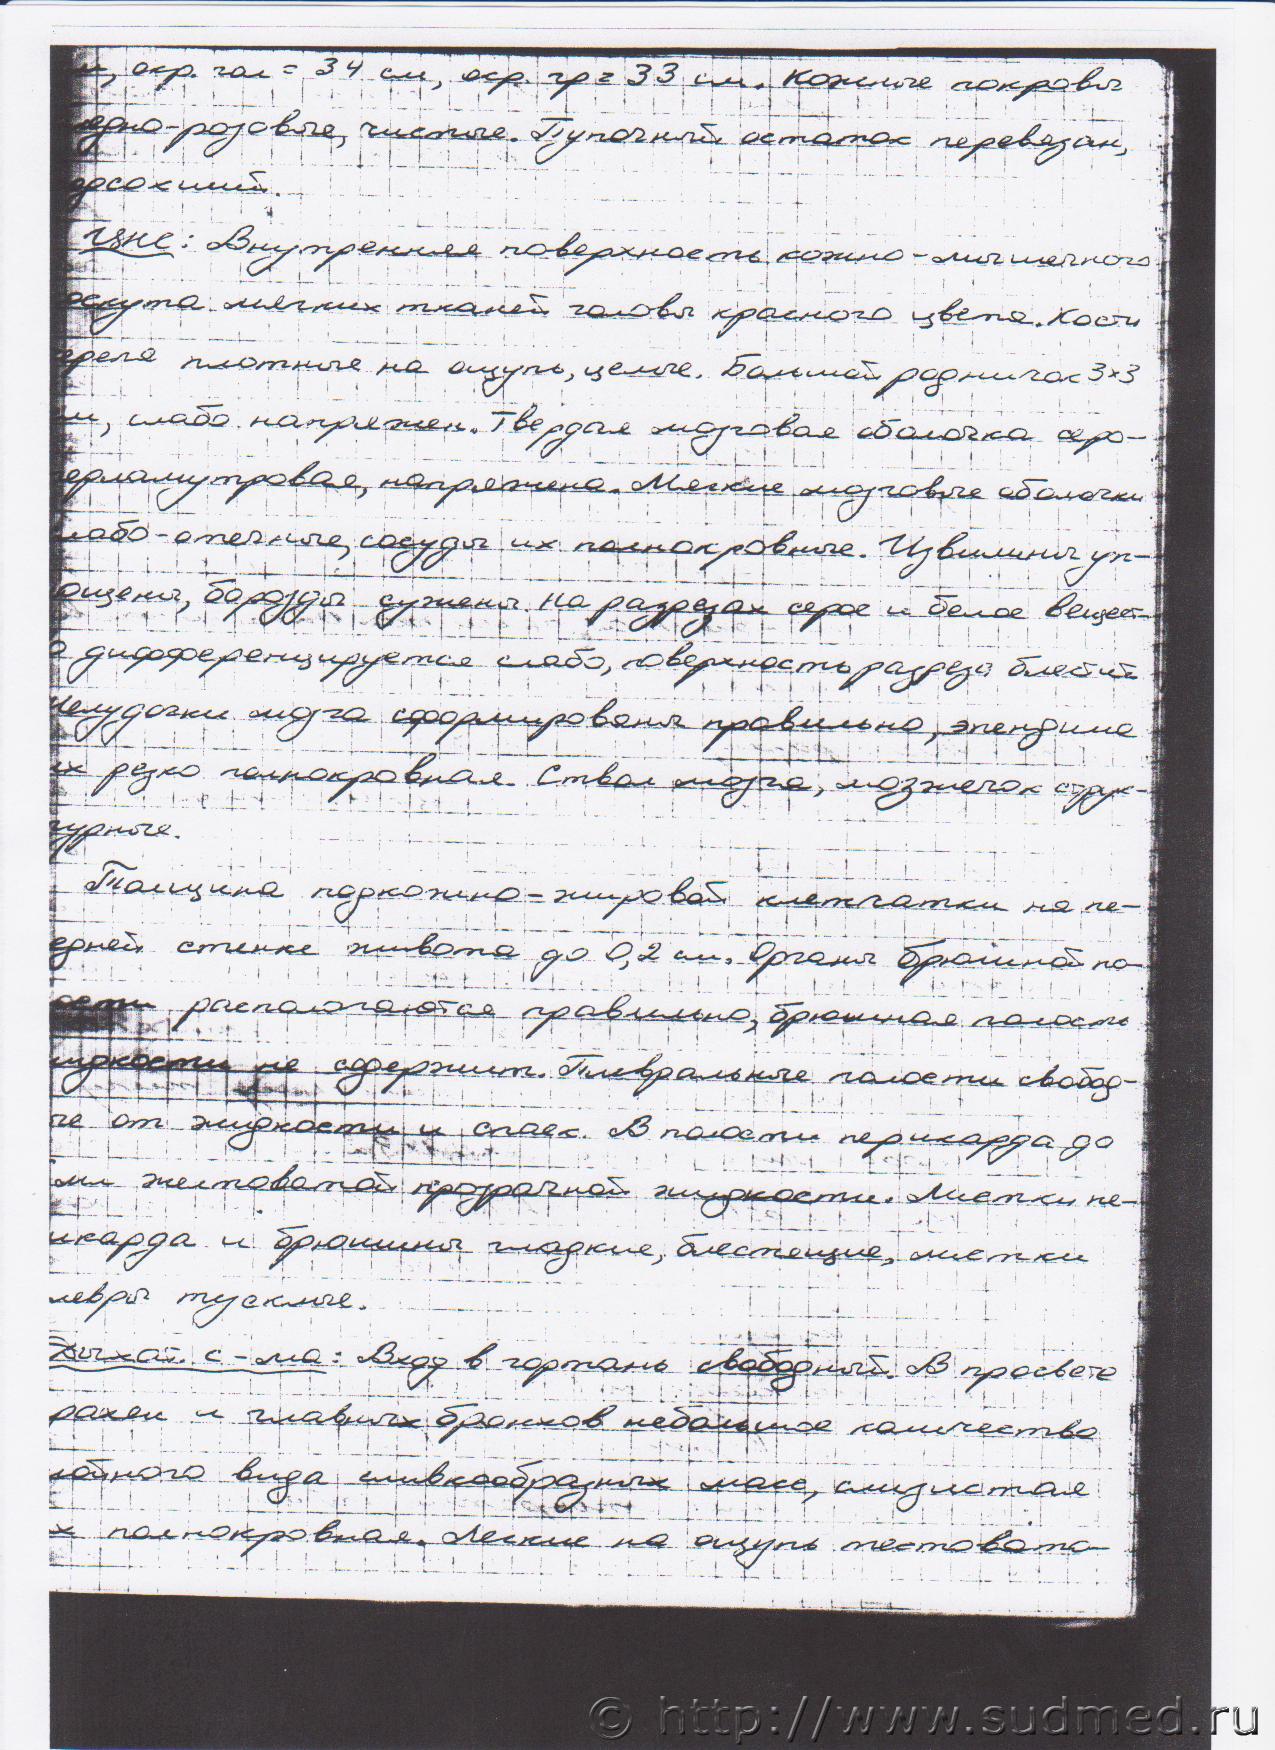 м, окр. гол = 34 см, окр. гр = 33 см. Кожные покровы
едно-розовые, чистые. Пупочный остаток перевязан,
дсохший.
ЦНС: Внутренняя поверхность кожно-мышечного
оскута мягких тканей головы красного цвета. Кости
ерепа плотные на ощупь, целые. Большой родничок 3×3
м, слабо напряжен. Твердая мозговая оболочка серо-
ерламутровая, напряжена. Мягкие мозговые оболочки
лабо-отечные, сосуды их полнокровные. Извилины уп-
ощены, борозды сужены. На разрезах серое и белое вещест-
о дифференцируется слабо, поверхность разреза блестит
елудочки мозга сформированы правильно, эпендима
их резко полнокровная. Ствол мозга, мозжечок струк-
турные.
Толщина подкожно-жировой клетчатки на пе-
едней стенке живота до 0,2 см. Органы брюшной по-
ости распологаются правильно, брюшная полость
идкости не сдержит. Плевральные полости свобод-
ые от жидкости и спаек. В полости перикарда до
мл желтоватой прозрачной жидкости. Листки пе-
икарда и брюшины гладкие, блестящие, листки
левры тусклые.
Дыхат. с-ма: Вход в гортань свободный. В просвете
рахеи и главных бронхов небольшое количество
нойного вида сливкообразных масс, слизистая
х полнокровная. Легкие на ощупь тестовато-
© http://www.sudmed.ru